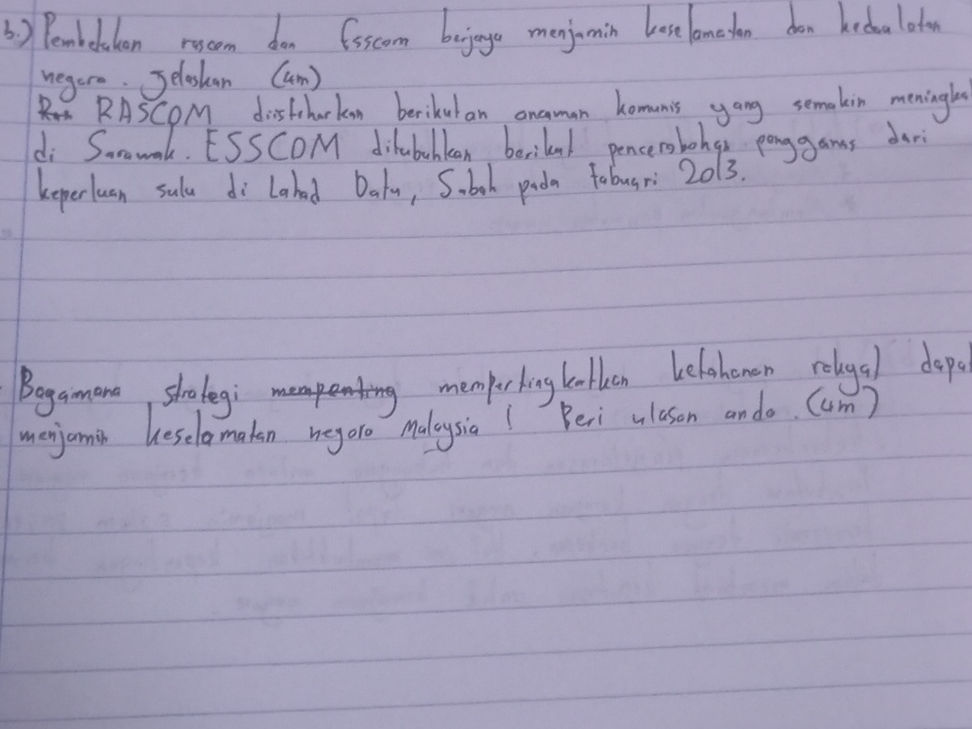 b.) Pembetukan rascom dan Esscom berjaya menjamin keselamatan dan kedaulatan
negara. Jelaskan (4m)
RASCOM diisteharkan berikutan ancaman komunis yang semakin meningka
di Sarawak. ESSCOM ditubuhkan berikut pencerobohan pengganas dari
keperluan sulu di Lahad Datu, Sabah pada Febuari 2013.
Bagaimana strategi mempenting mempertingkatkan ketahanan rakyat dapat
menjamin keselamatan negara Malaysia ! Beri ulasan anda. (4m)